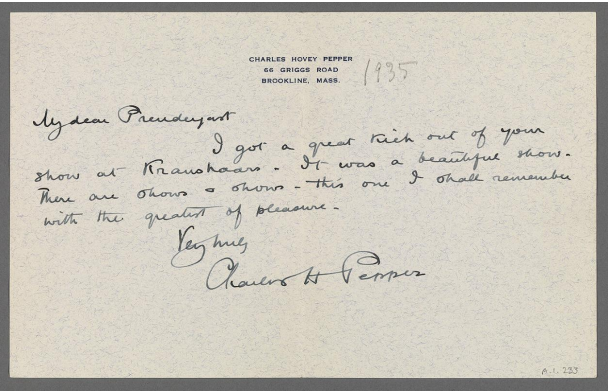 CHARLES HOVEY PEPPER
66 GRIGGS ROAD
BROOKLINE, MASS.
1935
My dear Prendergast
I got a great kick out of your
show at Kraushaars - It was a beautiful show -
There are shows & shows - this one I shall remember
with the greatest of pleasure -
Very truly
Charles H Pepper
A.1.233